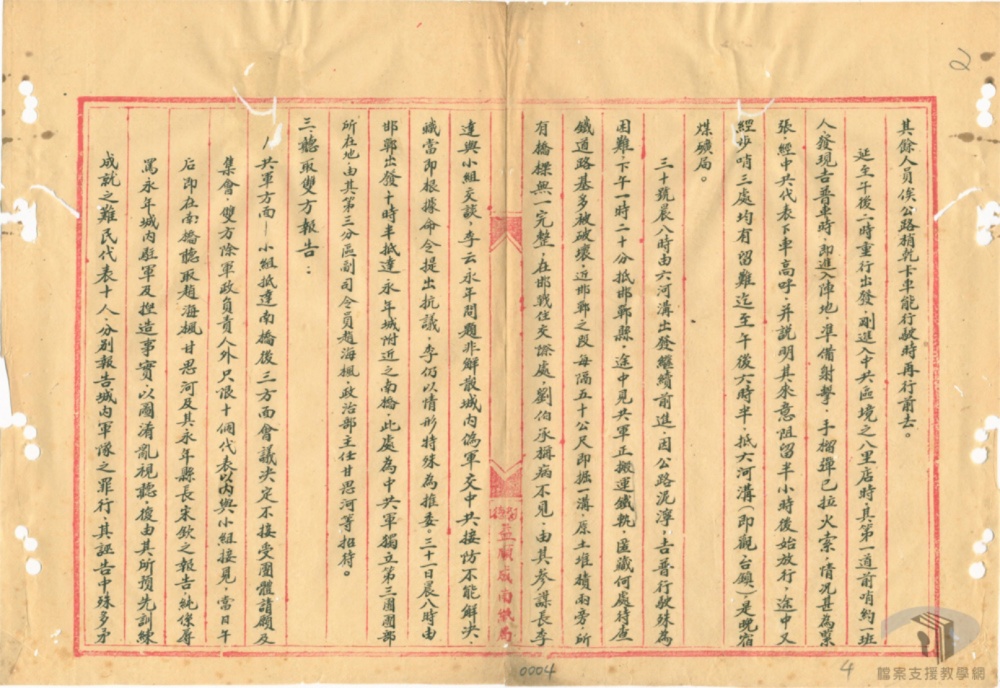 其餘人員俟公路稍乾卡車能行駛時再行前去。
延至午後二時重行出發,剛進入中共區境之八里店時,其第一道前哨約一班
人,發現吉普車時,即進入陣地,準備射擊,手榴彈已拉火索,情況甚為緊
張,經中共代表下車高呼,并説明其來意,阻留半小時後始放行,途中又
經步哨三處均有留難,迄至午後六時半,抵六河溝(即觀台鎮)是晚宿
煤礦局。
三十號晨八時由六河溝出發繼續前進,因公路泥濘,吉普行駛殊為
困難,下午一時二十分抵邯鄲縣,途中見共軍正搬運鐵軌,匿藏何處待查
鐵道路基多被破壞,近邯鄲之段每隔五十公尺即掘一溝,原土堆積兩旁,所
有橋樑無一完整,在邯戰住交際處,劉伯承稱病不見,由其參謀長李
達與小組交談,李云永年問題非解散城內偽軍交中共接防不能解決,
職當即根據命令提出抗議,李仍以情形特殊為推委,三十一日晨八時由
邯鄲出發十時半抵達永年城附近之南橋,此處為中共軍獨立第三團團部
所在地,由其第三分區副司令員趙海楓,政治部主任甘思河等招待。
三、聽取雙方報告:
1 共軍方面—小組抵達南橋後三方面會議決定不接受團體請願及
集會,雙方除軍政負責人外只限十個代表以內與小組接見,當日午
后即在南橋聽取趙海楓甘思河及其永年縣長宋欽之報告,純係辱
罵永年城內駐軍及捏造事實,以圖淆亂視聽,復由其所預先訓練
成就之難民代表十人,分別報告城內軍隊之罪行,其誣告中殊多矛
2
0004
4
檔案支援教學網